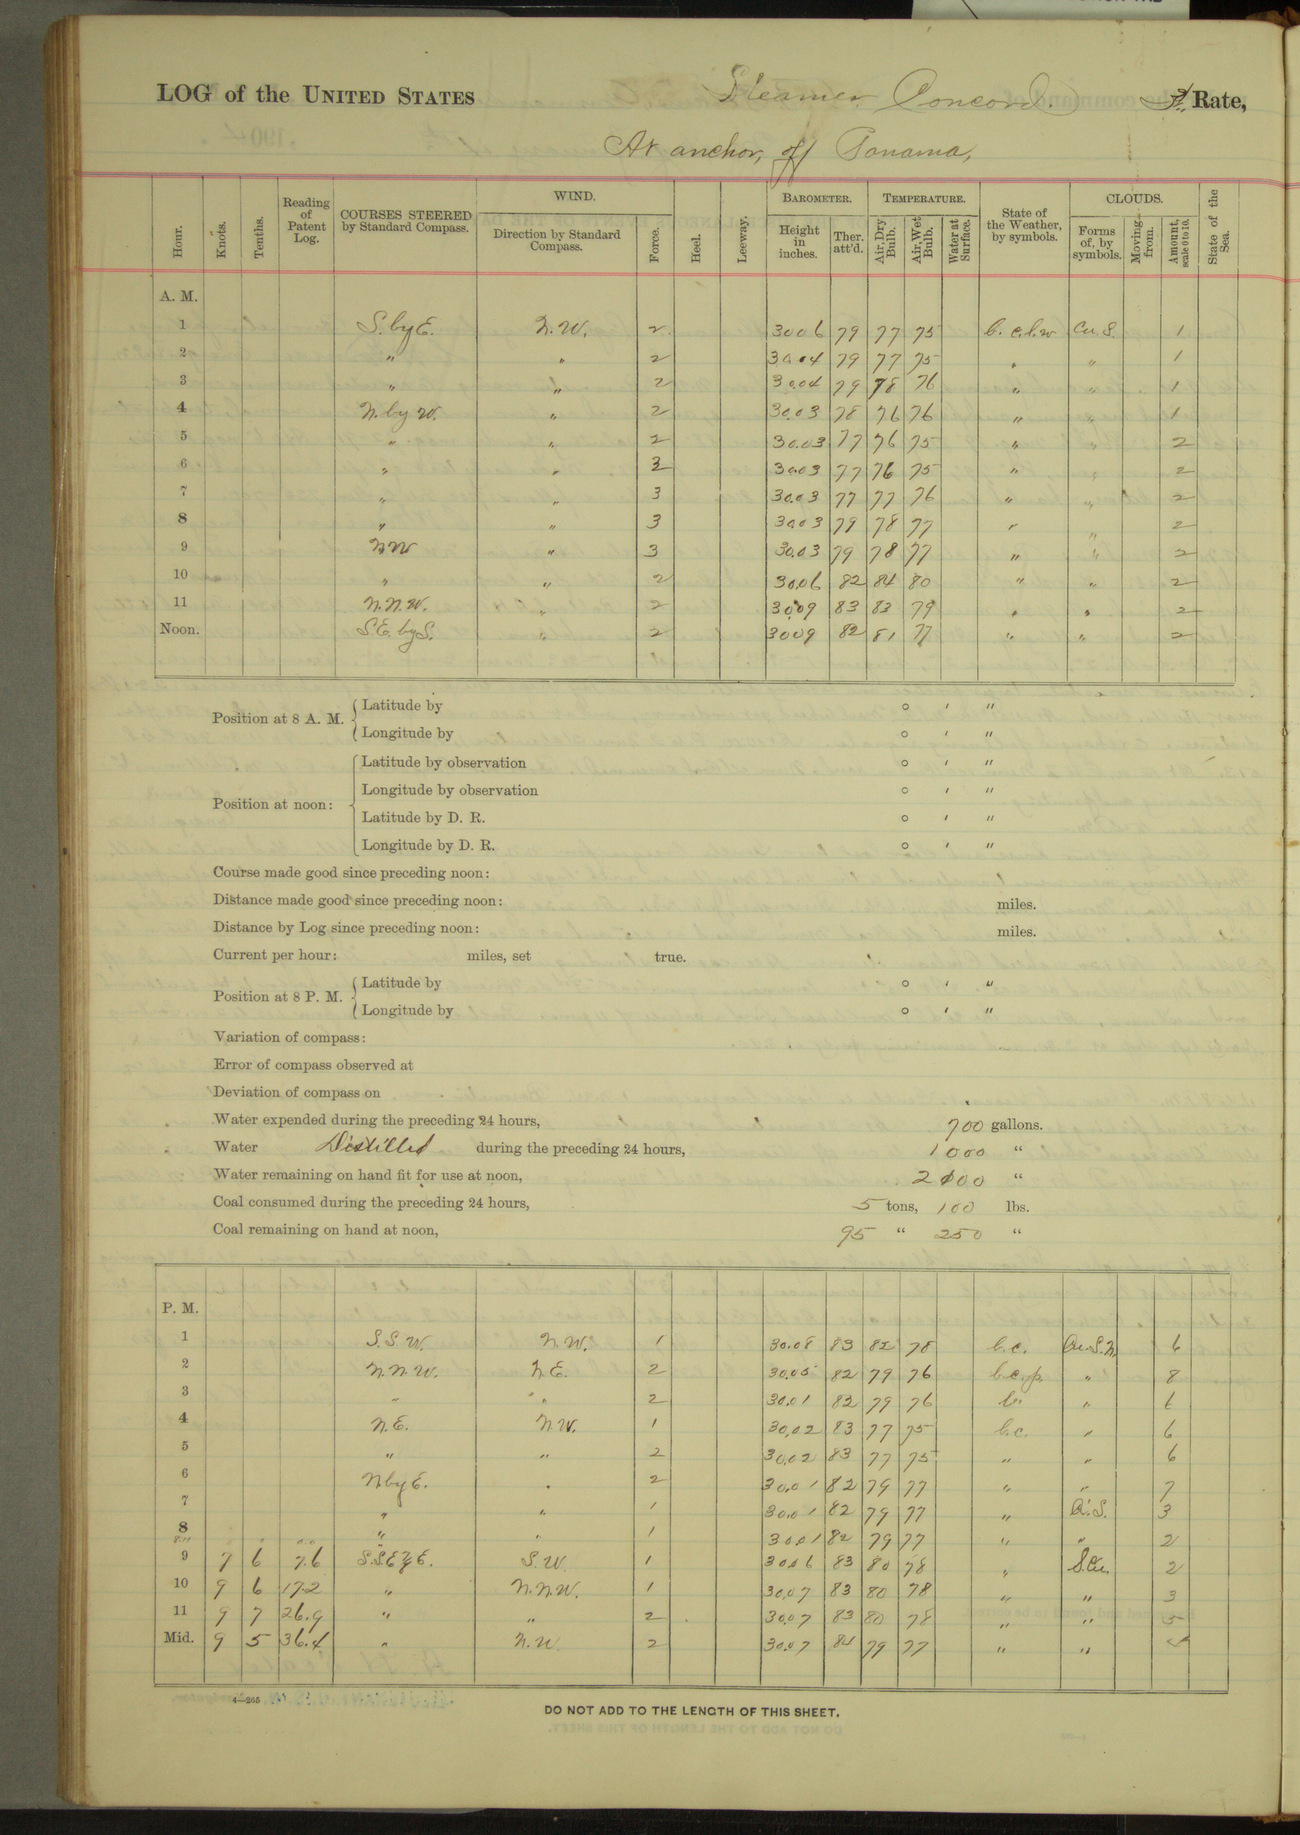 LOG of the UNITED STATES Steamer Concord. Rate,
At anchor, off Panama,
Hour. Knots. Tenths. Reading of Patent Log. COURSES STEERED by Standard Compass. WIND. Direction by Standard Compass. Force. Heel. Leeway. BAROMETER. Height in inches. Ther. att'd. TEMPERATURE. Air, Dry Bulb. Air, Wet Bulb. Water at Surface. State of the Weather, by symbols. CLOUDS. Forms of, by symbols. Moving from. Amount, scale 0 to 10. State of the Sea.
A. M.
1 S. by E. N.W. 2 30.06 79 77 75 Cu. S. 1
2 " " 2 30.04 79 77 75 " " 1
3 " " 2 30.04 79 78 76 " " 1
4 N. by W. " 2 30.03 78 76 76 " " 1
5 " " 2 30.03 77 76 75 " " 2
6 " " 3 30.03 77 76 75 " " 2
7 " " 3 30.03 77 77 76 " " 2
8 " " 3 30.03 79 78 77 " " 2
9 NW " 3 30.03 79 78 77 " " 2
10 " " 2 30.06 82 84 80 " " 2
11 N.N.W. " 2 30.09 83 83 79 " " 2
Noon. S.E. by S. " 2 30.09 82 81 77 " " 2
Position at 8 A. M. Latitude by ° ' "
Longitude by ° ' "
Position at noon: Latitude by observation ° ' "
Longitude by observation ° ' "
Latitude by D. R. ° ' "
Longitude by D. R. ° ' "
Course made good since preceding noon:
Distance made good since preceding noon: miles.
Distance by Log since preceding noon: miles.
Current per hour: miles, set true.
Position at 8 P. M. Latitude by ° ' "
Longitude by ° ' "
Variation of compass:
Error of compass observed at
Deviation of compass on
Water expended during the preceding 24 hours, 700 gallons.
Water Distilled during the preceding 24 hours, 1000 "
Water remaining on hand fit for use at noon, 2100 "
Coal consumed during the preceding 24 hours, 5 tons, 100 lbs.
Coal remaining on hand at noon, 95 " 250 "
P. M.
1 S.S.W. N.W. 1 30.08 83 82 78 b.c. Cu.S.N. 6
2 N.N.W. N.E. 2 30.05 82 79 76 b.c.p. " 8
3 " " 2 30.01 82 79 76 " 6
4 N.E. N.W. 1 30.02 83 77 75 b.c. " 6
5 " " 2 30.02 83 77 75 " " 6
6 N by E. " 2 30.01 82 79 77 " " 7
7 " " 1 30.01 82 79 77 " 3
8 " " 1 30.01 82 79 77 " " 2
9 7 6 7.6 S.W. 1 30.06 83 80 78 " S.Cu. 2
10 9 6 17.2 " N.N.W. 1 30.07 83 80 78 " " 3
11 9 7 26.9 " " 2 30.07 83 80 78 " " 5
Mid. 9 5 36.4 " N.W. 2 30.07 84 79 77 " "
4—265
DO NOT ADD TO THE LENGTH OF THIS SHEET.